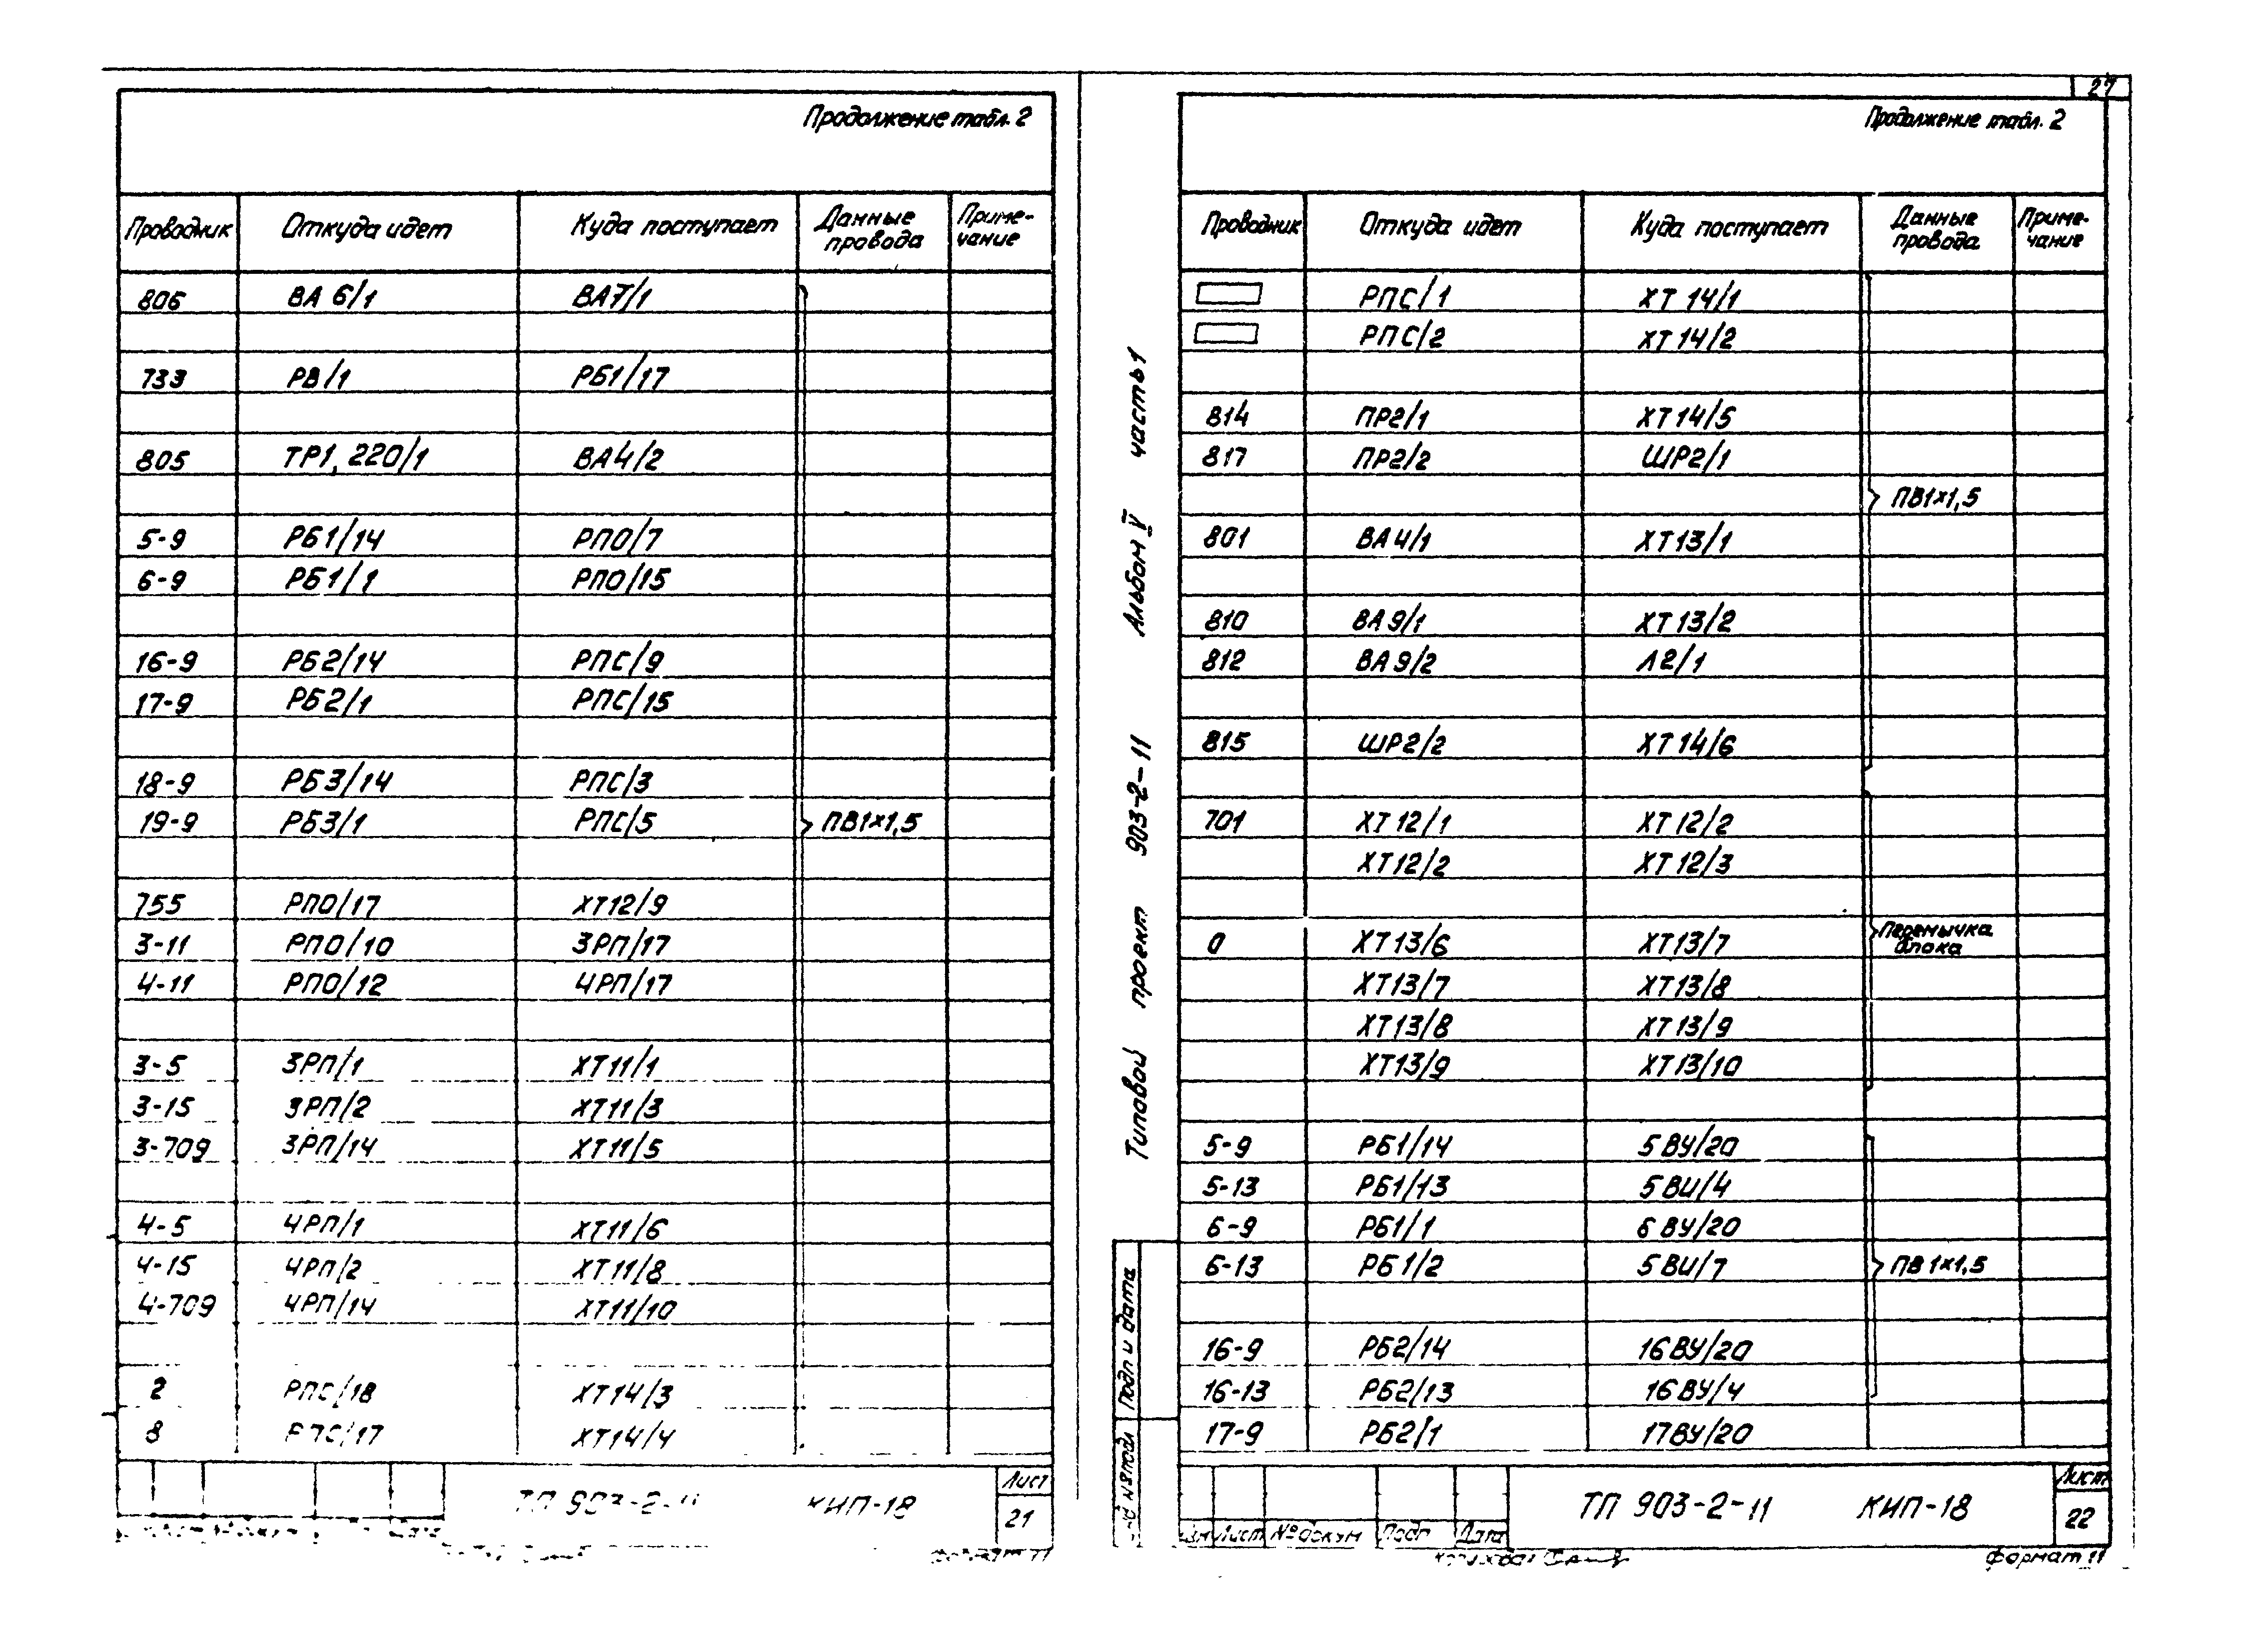 Продолжение табл. 2
Проводник Откуда идет Куда поступает Данные провода Приме-чание
806 ВА 6/1 ВА7/1
733 РВ/1 РБ1/17
805 ТР1, 220/1 ВА4/2
5-9 РБ1/14 РПО/7
6-9 РБ1/1 РПО/15
16-9 РБ2/14 РПС/9
17-9 РБ2/1 РПС/15
18-9 РБ3/14 РПС/3
19-9 РБ3/1 РПС/5 ПВ1×1,5
755 РПО/17 ХТ12/9
3-11 РПО/10 3РП/17
4-11 РПО/12 4РП/17
3-5 3РП/1 ХТ11/1
3-15 3РП/2 ХТ11/3
3-709 3РП/14 ХТ11/5
4-5 4РП/1 ХТ11/6
4-15 4РП/2 ХТ11/8
4-709 4РП/14 ХТ11/10
2 РПС/18 ХТ14/3
8 РПС/17 ХТ14/4
ТП 903-2-11 КИП-18
Лист
21
формат 11
Типовой проект 903-2-11 Альбом V часть 1
Подп и дата
27
Продолжение табл. 2
Проводник Откуда идет Куда поступает Данные провода Приме-чание
РПС/1 ХТ 14/1
РПС/2 ХТ 14/2
814 ПР2/1 ХТ14/5
817 ПР2/2 ШР2/1
ПВ1×1,5
801 ВА4/1 ХТ13/1
810 ВА9/1 ХТ13/2
812 ВА9/2 Л2/1
815 ШР2/2 ХТ14/6
701 ХТ12/1 ХТ12/2
ХТ12/2 ХТ12/3
0 ХТ13/6 ХТ13/7 Перемычка блока
ХТ13/7 ХТ13/8
ХТ13/8 ХТ13/9
ХТ13/9 ХТ13/10
5-9 РБ1/14 5ВУ/20
5-13 РБ1/13 5ВИ/4
6-9 РБ1/1 6ВУ/20
6-13 РБ1/2 5ВИ/7 ПВ1×1,5
16-9 РБ2/14 16ВУ/20
16-13 РБ2/13 16ВУ/4
17-9 РБ2/1 17ВУ/20
Лист № докум Подп Дата
ТП 903-2-11 КИП-18
Лист
22
формат 11